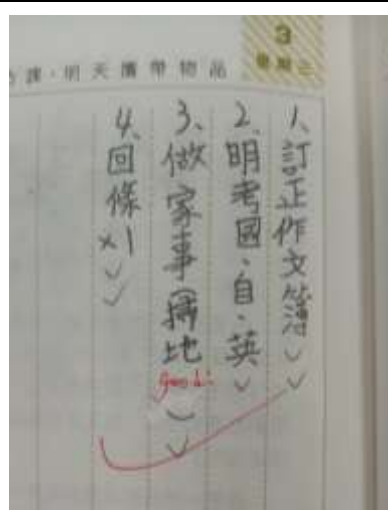 3
星期三
課、明天攜帶物品
1、訂正作文簿
2、明考國、自、英
3、做家事(掃地
good!
4、回條x1